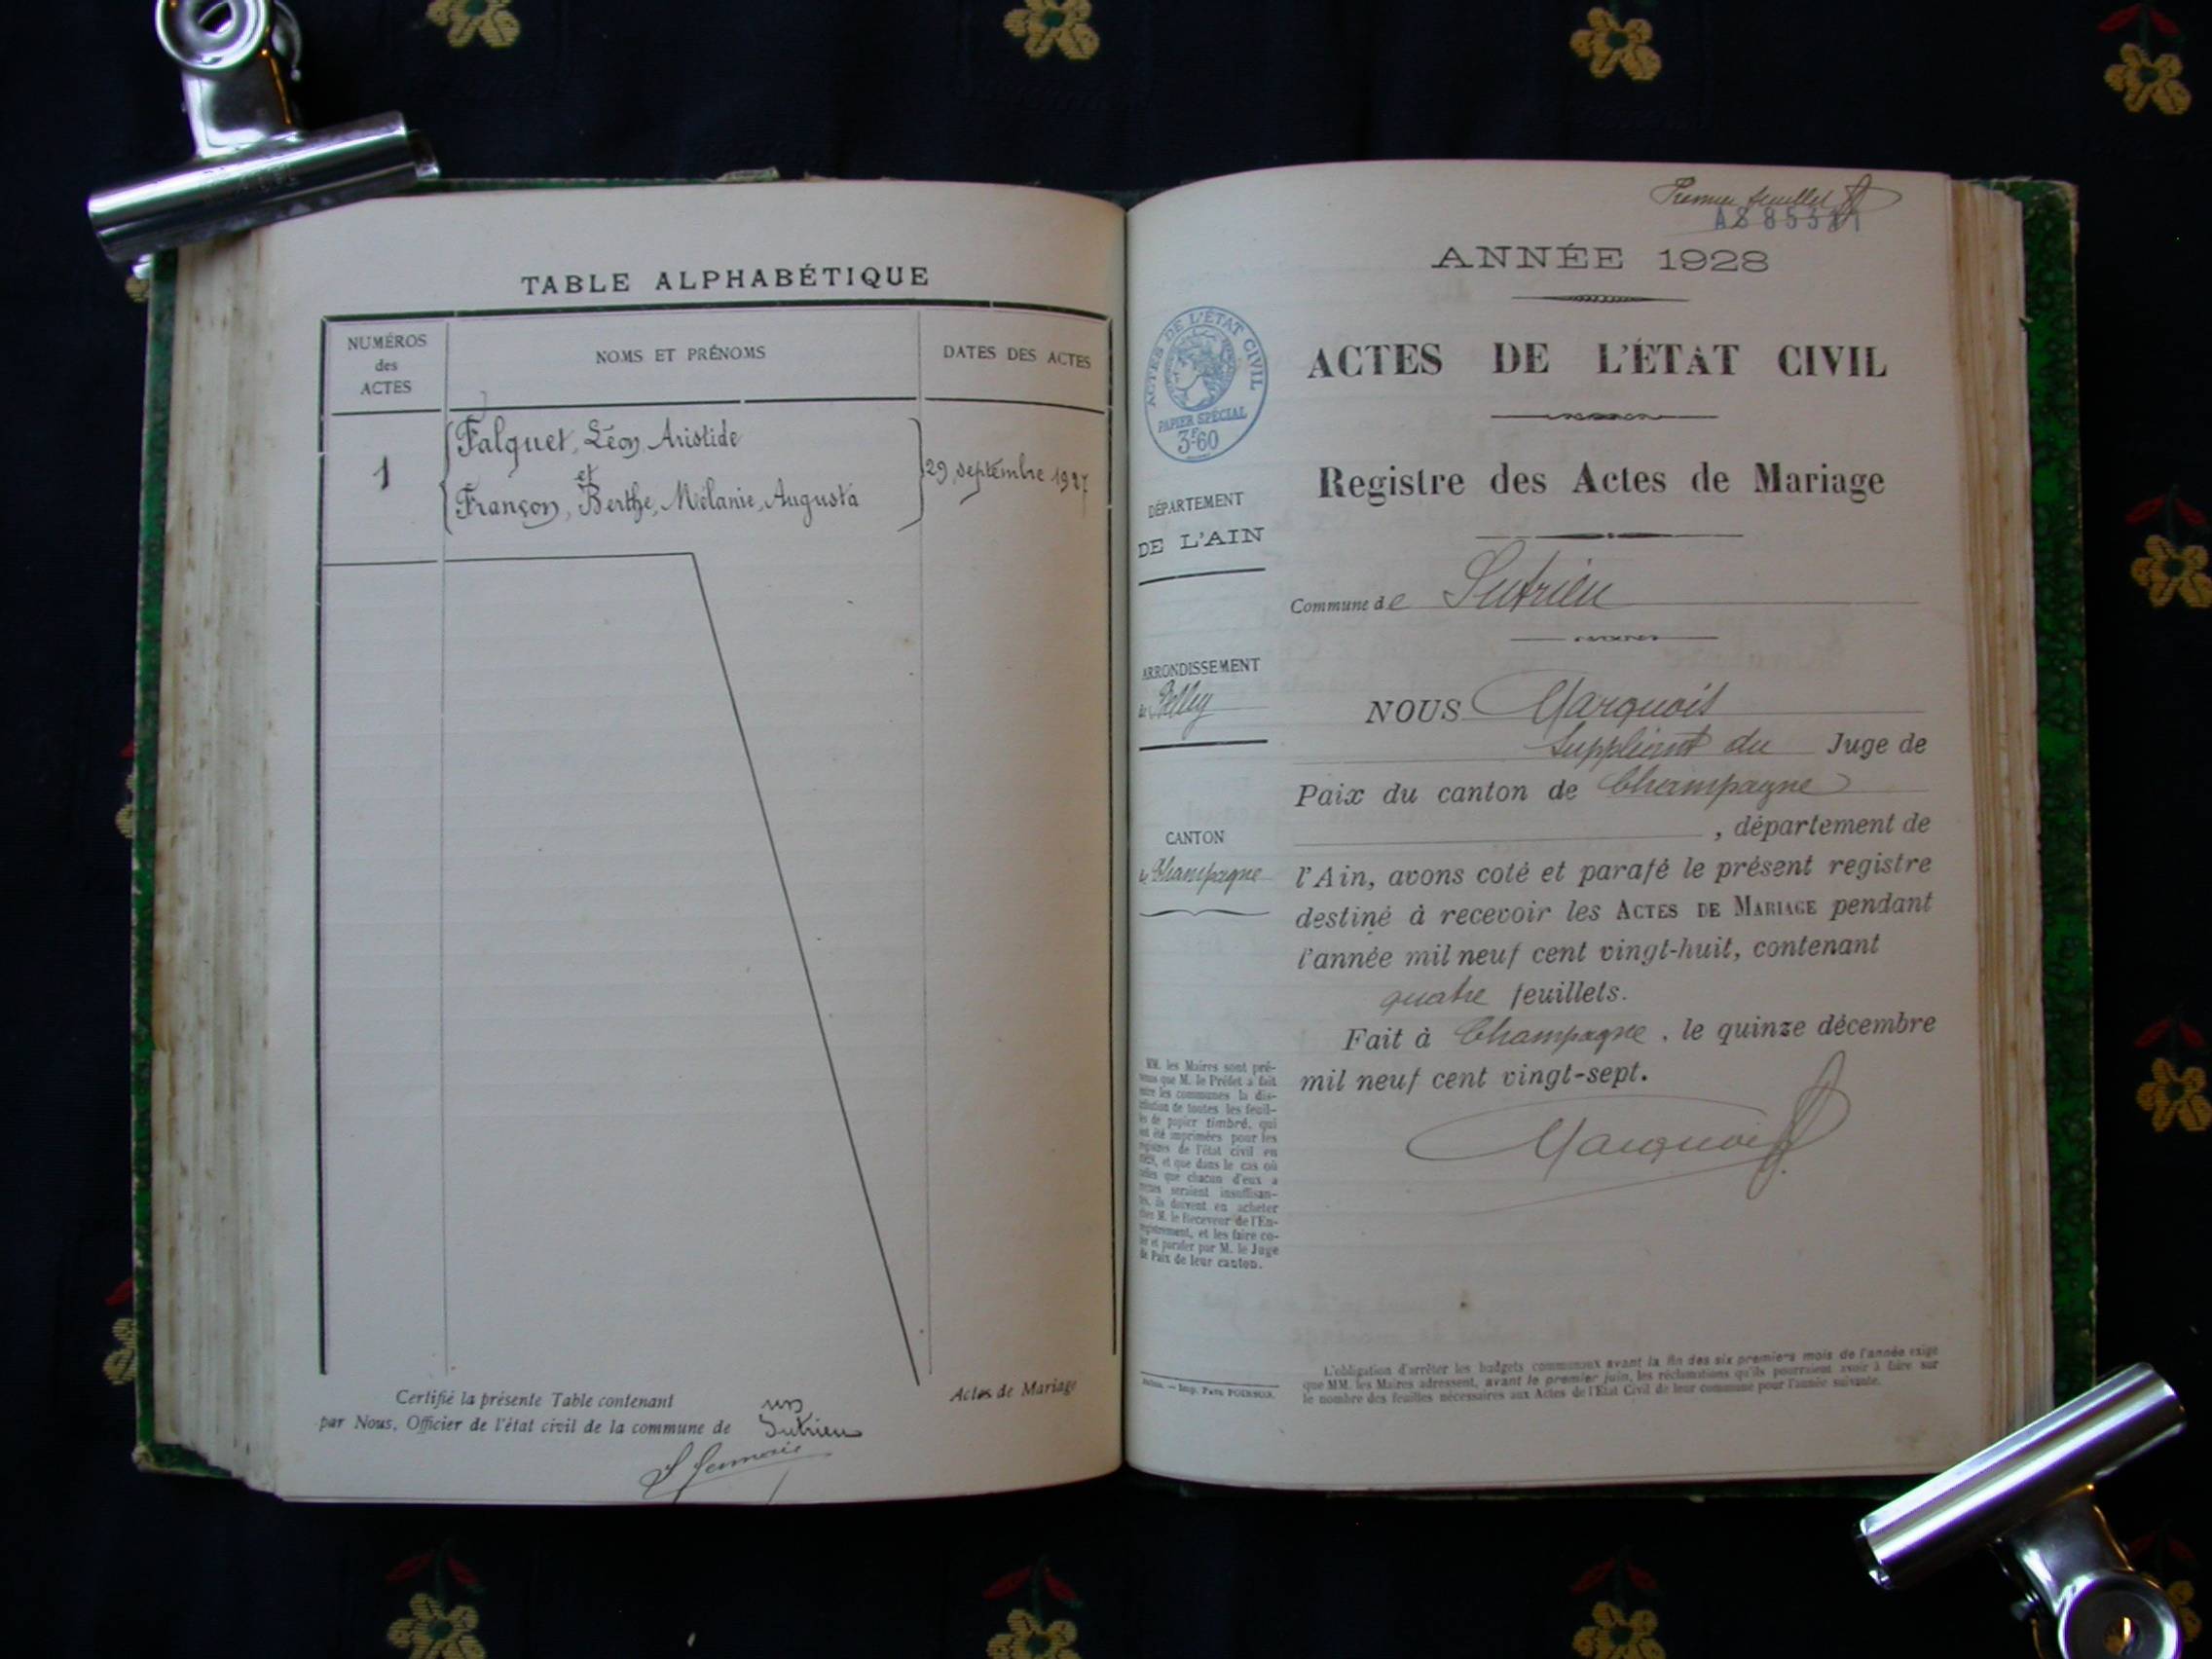 TABLE ALPHABÉTIQUE
NUMÉROS
des
ACTES
NOMS ET PRÉNOMS
DATES DES ACTES
1
Falquet, Léon, Aristide
et
Françon, Berthe, Mélanie, Augusta
29 septembre 1927
Certifié la présente Table contenant un
par Nous, Officier de l'état civil de la commune de Sutrieu
Actes de Mariage
Premier feuillet
ANNÉE 1928
ACTES DE L'ÉTAT CIVIL
Registre des Actes de Mariage
ACTES DE L'ÉTAT CIVIL
PAPIER SPÉCIAL
3F60
DÉPARTEMENT
DE L'AIN
ARRONDISSEMENT
de Belley
CANTON
de Champagne
Commune de Sutrieu
NOUS Marquois
Suppléant du Juge de
Paix du canton de Champagne
, département de
l'Ain, avons coté et parafé le présent registre
destiné à recevoir les ACTES DE MARIAGE pendant
l'année mil neuf cent vingt-huit, contenant
quatre feuillets.
Fait à Champagne, le quinze décembre
mil neuf cent vingt-sept.
Marquois
MM. les Maires sont pré-
venus que M. le Préfet a fait
entre les communes la dis-
tribution de toutes les feuil-
les de papier timbré, qui
ont été imprimées pour les
registres de l'état civil en
1928, et que dans le cas où
celles que chacun d'eux a
reçues seraient insuffisan-
tes, ils doivent en acheter
chez M. le Receveur de l'En-
registrement, et les faire co-
ter et parafer par M. le Juge
de Paix de leur canton.
Imp. Paul POINSOT.
L'obligation d'arrêter les budgets communaux avant la fin des six premiers mois de l'année exige
que MM. les Maires adressent, avant le premier juin, les réclamations qu'ils pourraient avoir à faire sur
le nombre des feuilles nécessaires aux Actes de l'Etat Civil de leur commune pour l'année suivante.